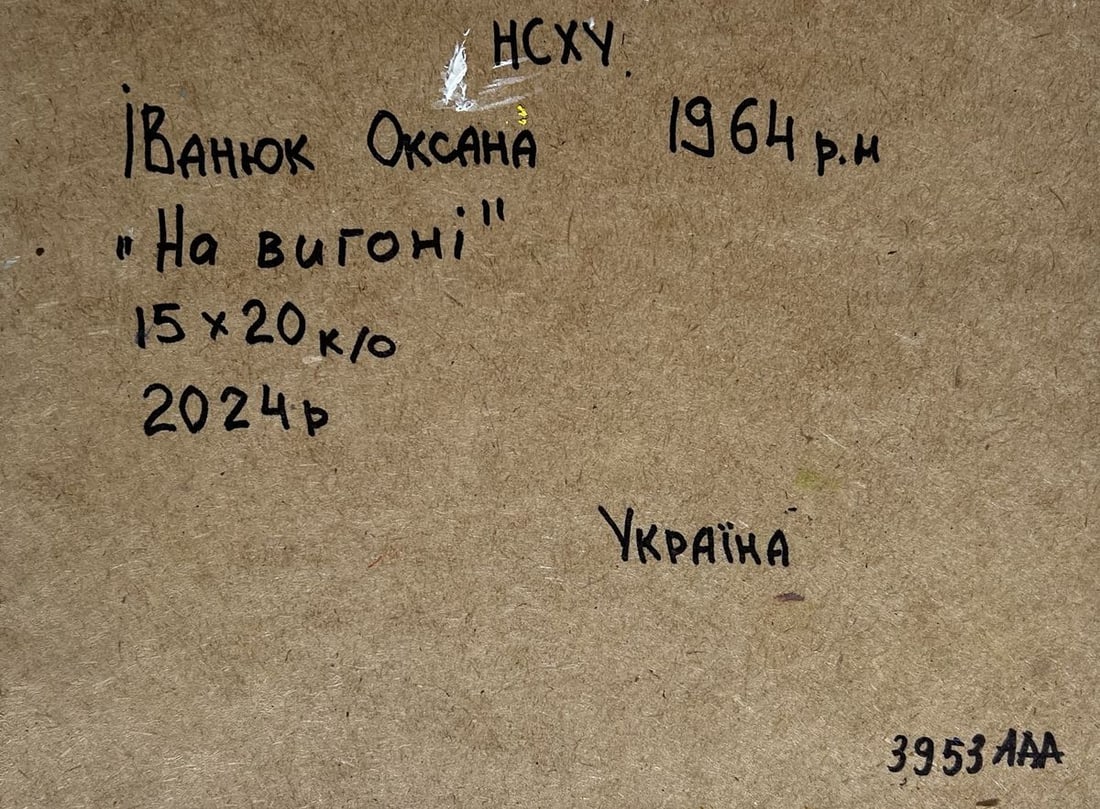 НСХУ.
Іванюк Оксана 1964 р.н
"На вигоні"
15 x 20 к/о
2024р
Україна
3953 ААА